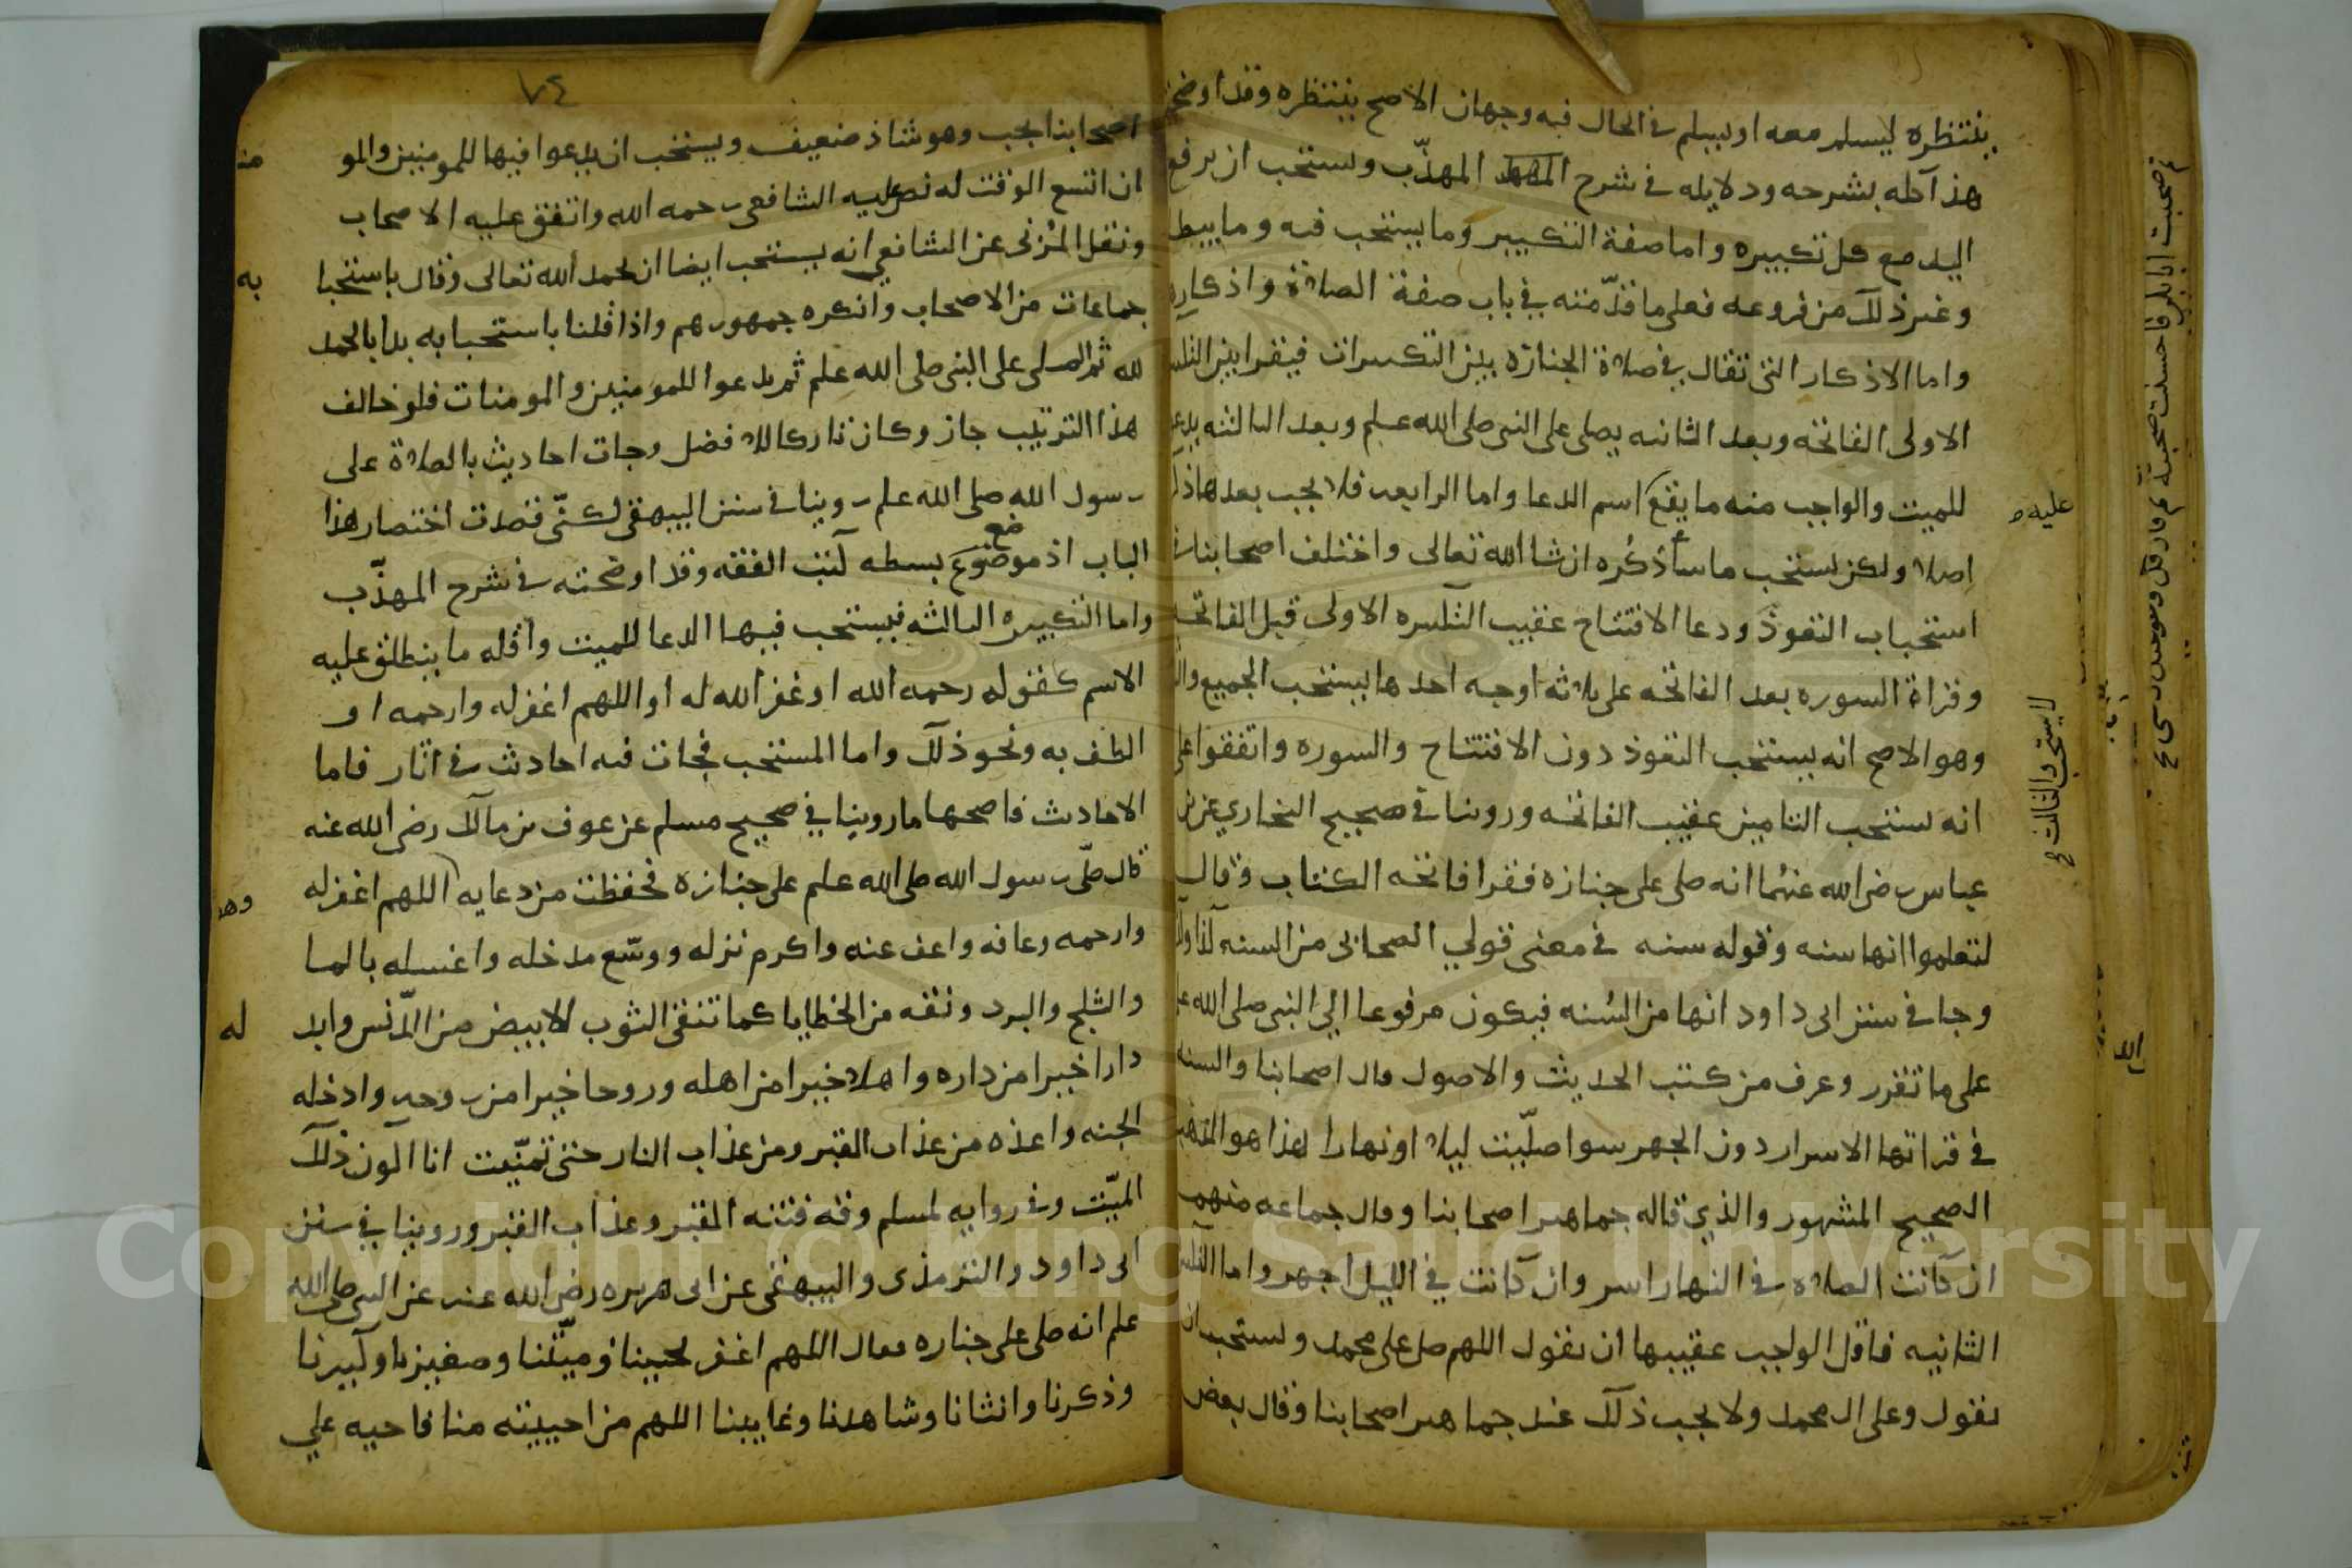 ينتظره ليسلم معه او يسلم في الحال فيه وجهان الاصح ينتظره وقد اوضحت
هذا كله بشرحه ودلايله في شرح المهذّب ويستحب ان يرفع
اليد مع كل تكبيره واما صفة التكبير وما يستحب فيه وما يبطل
وغير ذلك من فروعه فعلى ما قدّمته في باب صفة الصلاة واذكاره
واما الاذكار التي تقال في صلاة الجنازه بين التكبيرات فيقرا بين التكبيره
الاولى الفاتحه وبعد الثانيه يصلى على النبي صلى الله عليه وسلم وبعد الثالثه يدعو
للميت والواجب منه ما يقع اسم الدعا واما الرابعه فلا يجب بعدها ذكر
عليه
اصلا ولكن يستحب ما سأذكره ان شا الله تعالى واختلف اصحابنا في
استحباب التعوذ ودعا الافتتاح عقيب التكبيره الاولى قبل الفاتحه
وقراة السوره بعد الفاتحه على ثلاثه اوجه احدها يستحب الجميع والثاني
لا يستحب والثالث
وهو الاصح انه يستحب التعوذ دون الافتتاح والسوره واتفقوا على
انه يستحب التامين عقيب الفاتحه وروينا في صحيح البخاري عن بن
عباس رضي الله عنهما انه صلى على جنازه فقرا فاتحه الكتاب وقال
لتعلموا انها سنه وقوله سنه في معنى قول الصحابي من السنه كذا وكذا
وجا في سنن ابى داود انها من السُنه فيكون مرفوعا الي النبي صلى الله عليه
على ما تقرر وعرف من كتب الحديث والاصول قال اصحابنا والسنه
في قراتها الاسرار دون الجهر سوا صلّيت ليلا او نهارا هذا هو المذهب
الصحيح المشهور والذي قاله جماهير اصحابنا وقال جماعه منهم
ان كانت الصلاه في النهار اسر وان كانت في الليل اجهر واما التكبيره
الثانيه فاقل الواجب عقيبها ان يقول اللهم صل على محمد ويستحب ان
يقول وعلى ال محمد ولا يجب ذلك عند جماهير اصحابنا وقال بعض
٧٤
اصحابنا يجب وهو شاذ ضعيف ويستحب ان يدعوا فيها للمومنين والمو
منا
ان اتسع الوقت له نص عليه الشافعي رحمه الله واتفق عليه الاصحاب
ونقل المُزنى عن الشافعي انه يستحب ايضا ان يحمد الله تعالى وقال باستحبا
به
جماعات من الاصحاب وانكره جمهورهم واذا قلنا باستحبابه بدا بالحمد
لله ثم الصلى على النبي صلى الله عليه وسلم ثم يدعوا للمومنين والمومنات فلو خالف
هذا الترتيب جاز وكان تاركا للافضل وجات احاديث بالصلاة على
رسول الله صلى الله عليه وسلم روينا في سنن البيهقي لكنّي قصدت اختصار هذا
الباب اذ موضع بسطه كتب الفقه وقد اوضحته في شرح المهذّب
واما التكبيره الثالثه فيستحب فيها الدعا للميت وأقله ما ينطلق عليه
الاسم كقوله رحمه الله او غفر الله له او اللهم اغفر له وارحمه او
الطف به ونحو ذلك واما المستحب فجات فيه احاديث في اثار فاما
الاحاديث فاصحها ما روينا في صحيح مسلم عن عوف بن مالك رضي الله عنه
قال صلّى رسول الله صلى الله عليه وسلم على جنازه فحفظت من دعايه اللهم اغفر له
وهو
وارحمه وعافه واعف عنه واكرم نزله ووسّع مدخله واغسله بالما
والثلج والبرد ونقه من الخطايا كما تنقى الثوب الابيض من الدّنس وابد
له
دارا خيرا من داره واهلا خيرا من اهله وزوجا خيرا من زوجه وادخله
الجنه واعذه من عذاب القبر ومن عذاب النار حتى تمنّيت انا اكون ذلك
الميّت وفي روايه لمسلم وقه فتنه القبر وعذاب القبر وروينا في سنن
ابى داود والترمذي والبيهقي عن ابى هريره رضي الله عنه عن النبي صلى الله
عليه وسلم انه صلى على جنازه فقال اللهم اغفر لحيينا وميّتنا وصغيرنا وكبيرنا
وذكرنا وانثانا وشاهدنا وغايبنا اللهم من احييته منا فاحيه علي
Copyright © King Saud University